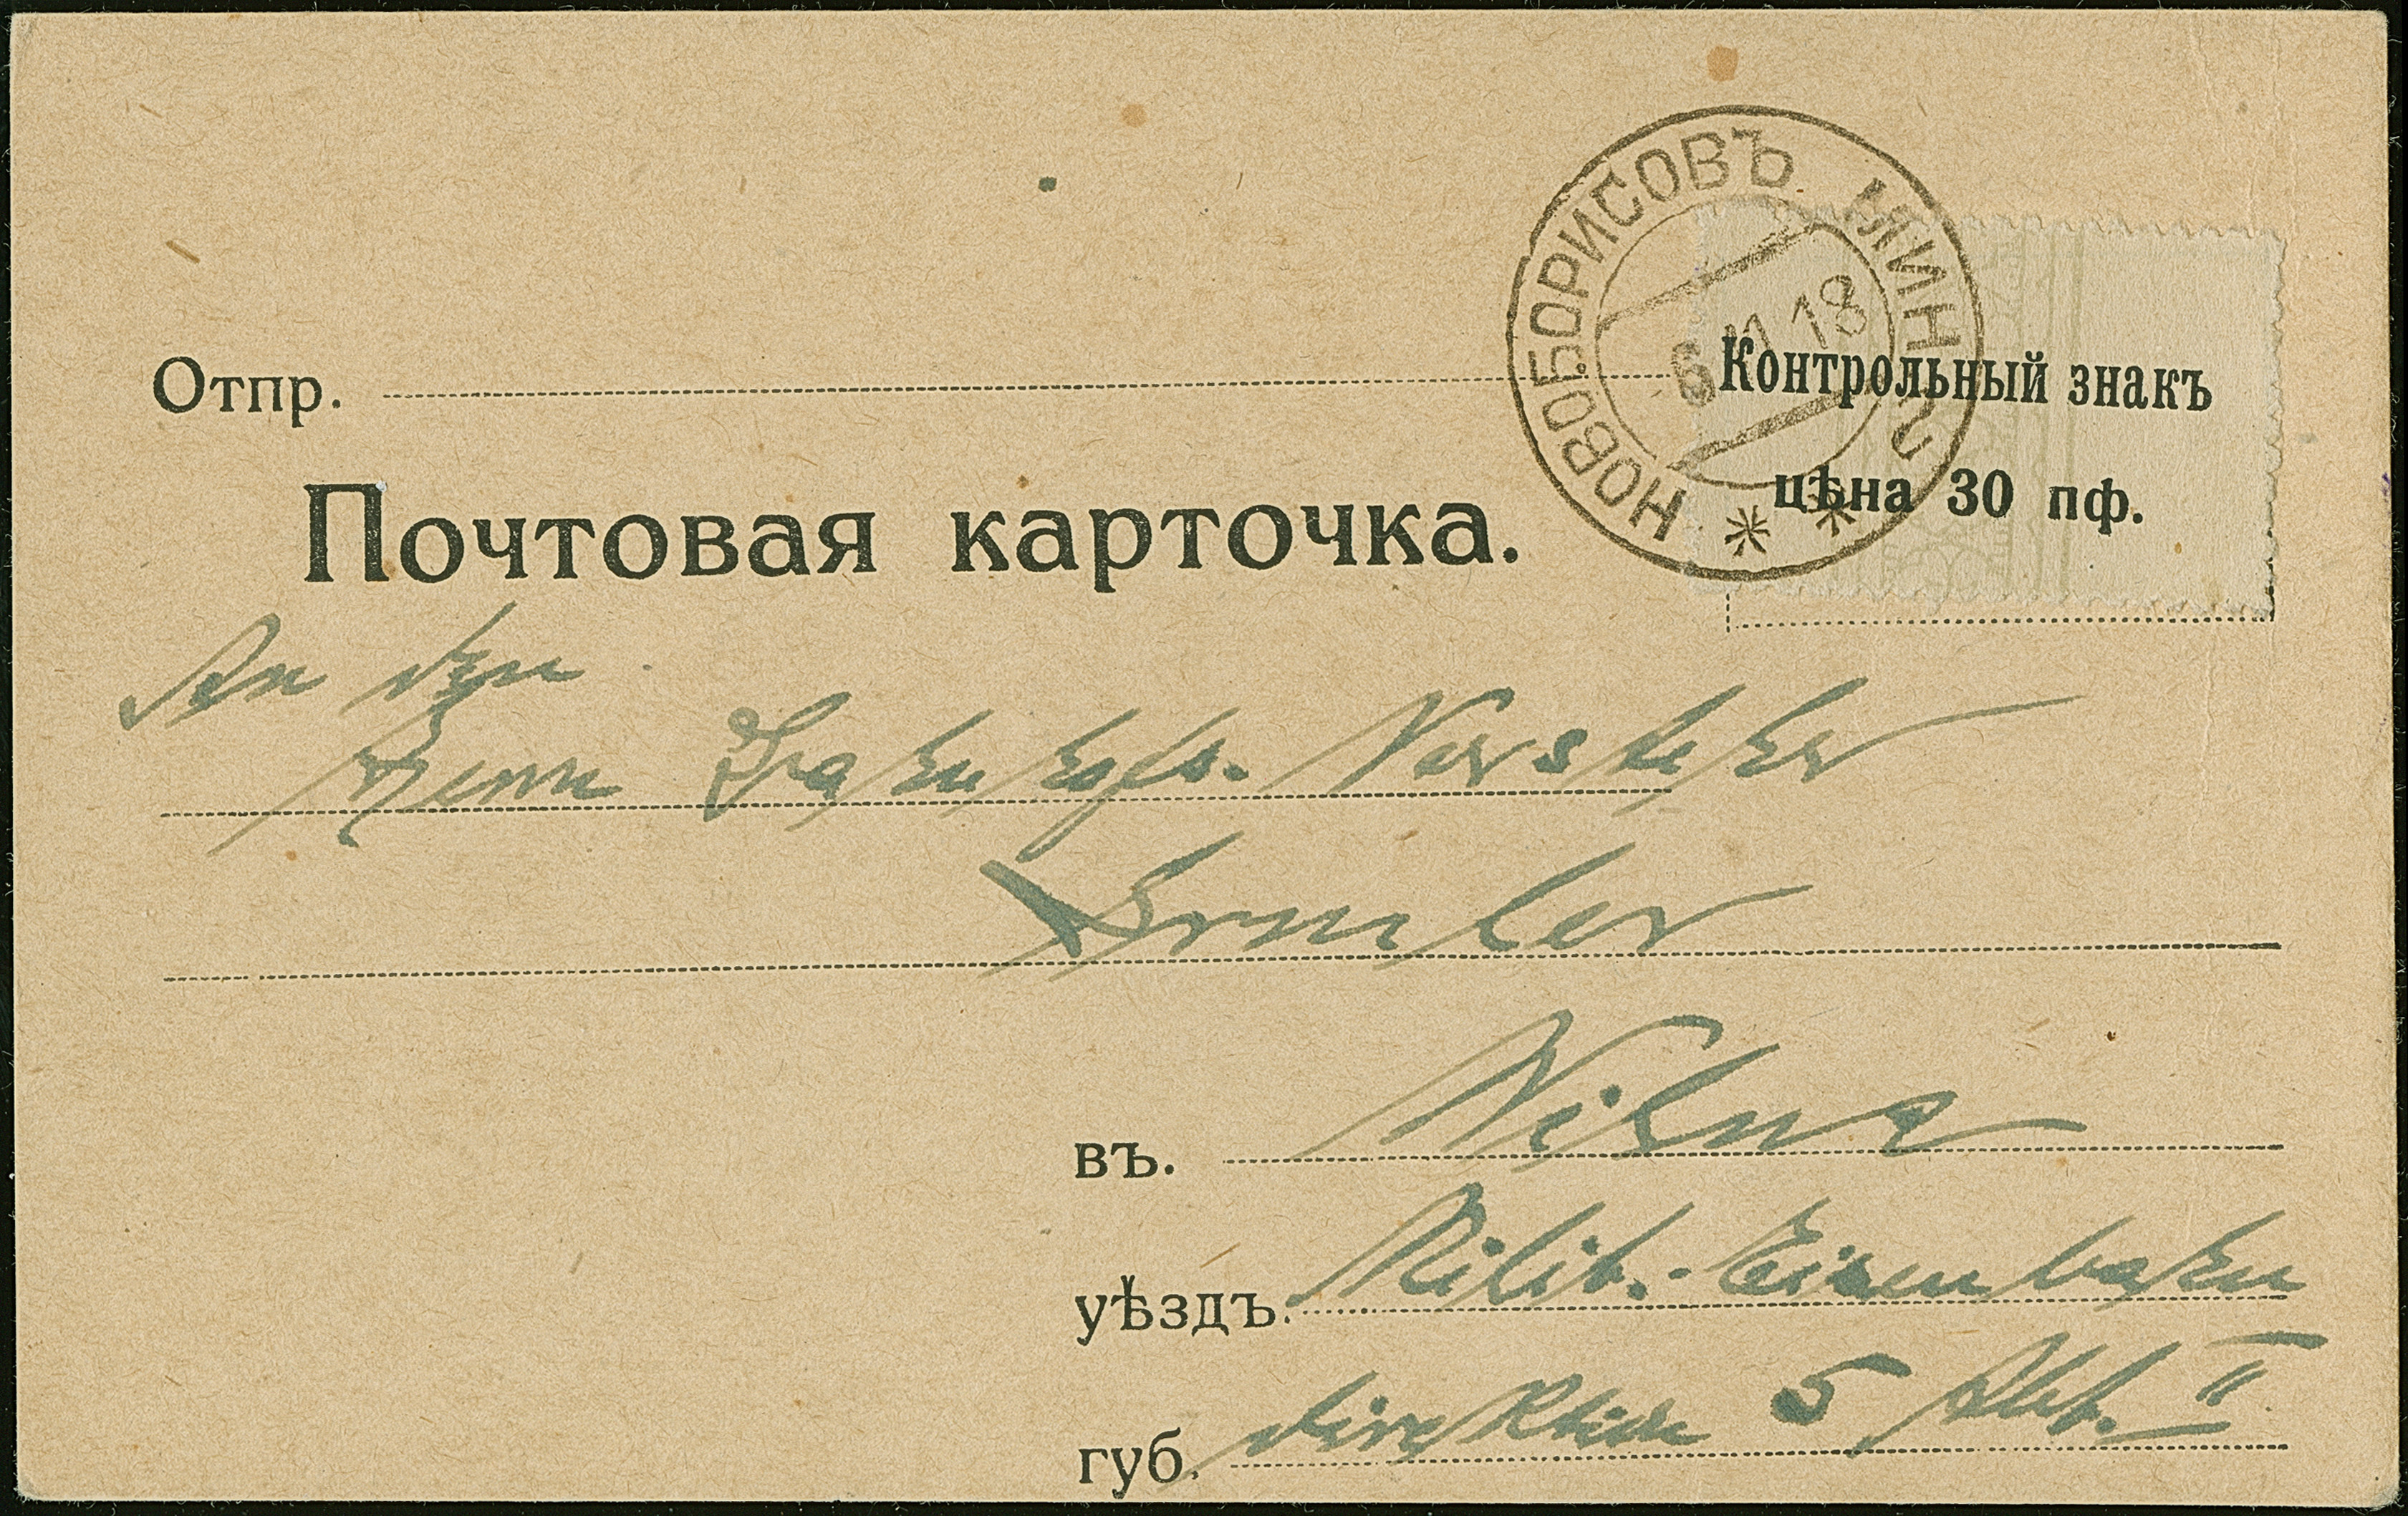 НОВОБОРИСОВЪ МИН
6 11 18
Отпр.
Контрольный знакъ
Почтовая карточка.
цѣна 30 пф.
An den
Herrn Vorsteher
въ. Wilna
уѣздъ. Milit.-Eisenbahn
губ. direktion 5 Abt. II